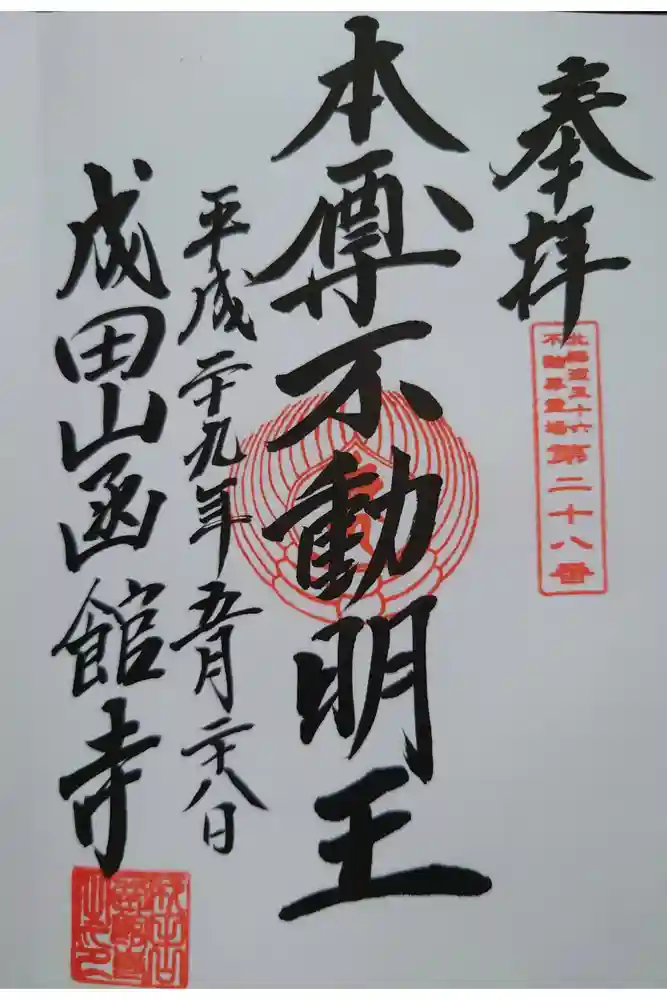 奉拝
北海道三十六
不動尊霊場
第二十八番
本尊不動明王
平成二十九年五月二十八日
成田山函館寺